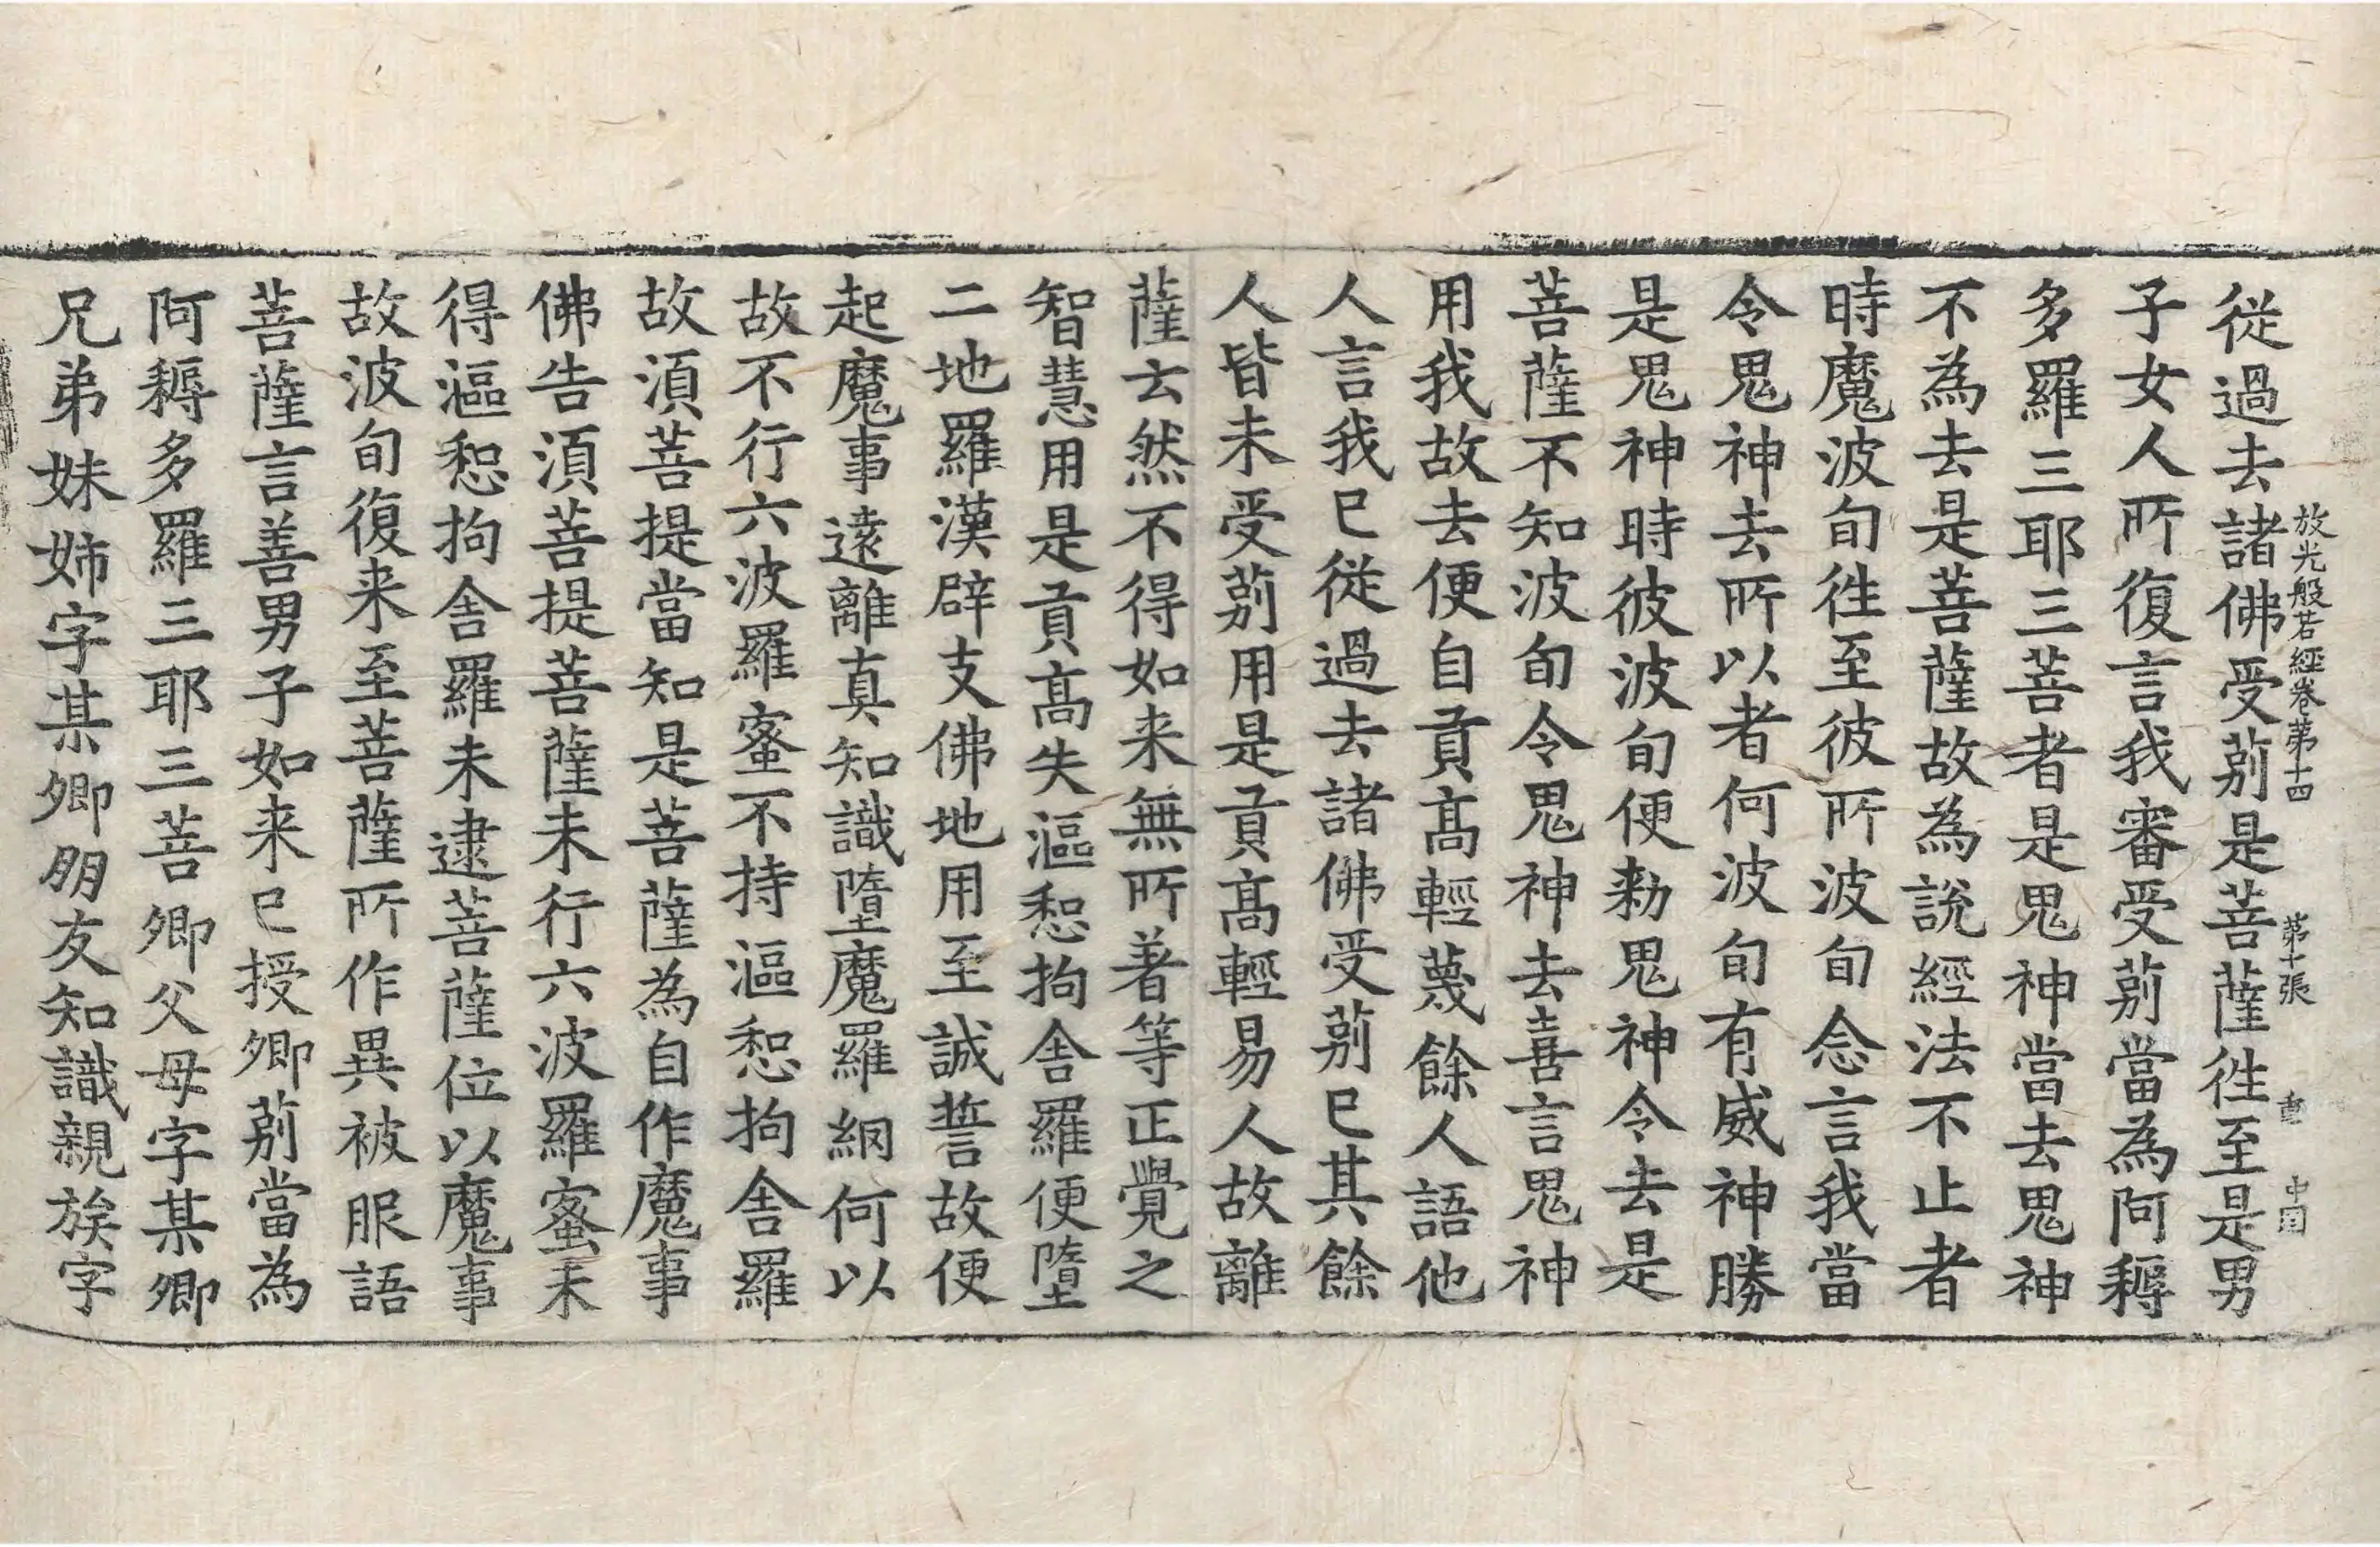 放光般若經卷第十四　第十張　中囯
從過去諸佛受莂是菩薩徃至是男
子女人所復言我審受莂當為阿耨
多羅三耶三菩者是鬼神當去鬼神
不為去是菩薩故為說經法不止者
時魔波旬徃至彼所波旬念言我當
令鬼神去所以者何波旬有威神勝
是鬼神時彼波旬便勑鬼神令去是
菩薩不知波旬令鬼神去喜言鬼神
用我故去便自貢髙輕蔑餘人語他
人言我已從過去諸佛受莂已其餘
人皆未受莂用是貢髙輕易人故離
薩云然不得如来無所著等正覺之
智慧用是貢髙失漚惒拘舍羅便墮
二地羅漢辟支佛地用至誠誓故便
起魔事遠離真知識墮魔羅網何以
故不行六波羅蜜不持漚惒拘舍羅
故須菩提當知是菩薩為自作魔事
佛告須菩提菩薩未行六波羅蜜未
得漚惒拘舍羅未逮菩薩位以魔事
故波旬復来至菩薩所作異被服語
菩薩言善男子如来已授卿莂當為
阿耨多羅三耶三菩卿父母字某卿
兄弟妹姉字某卿朋友知識親族字